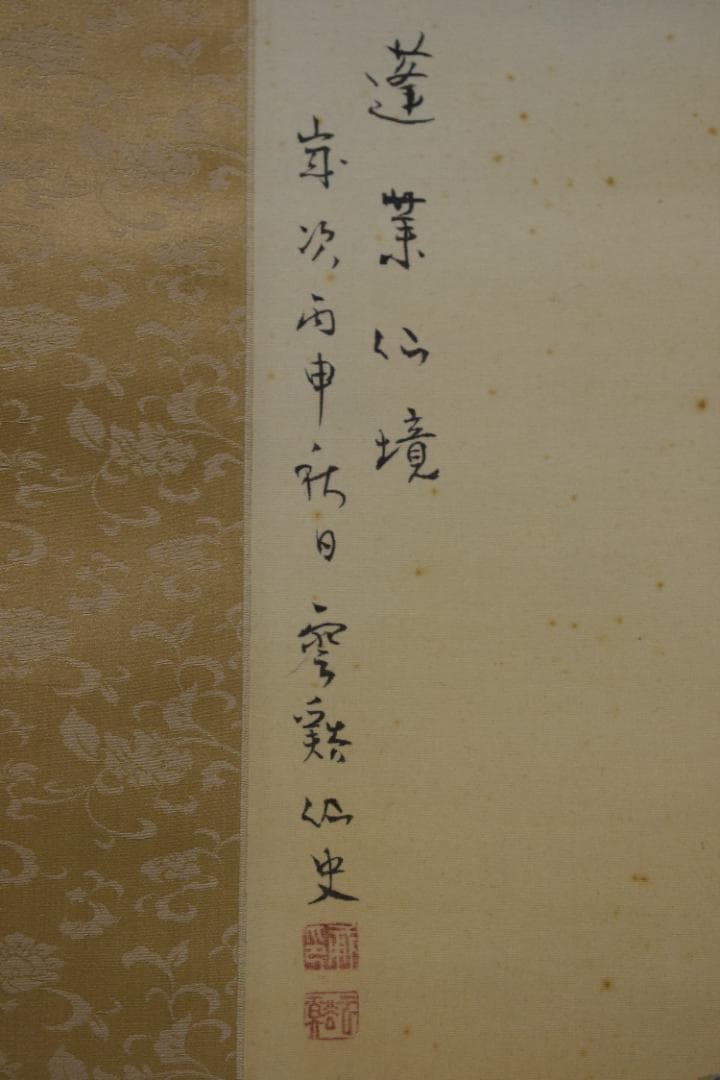 蓬莱仙境
歳次丙申秋日雲谿仙史